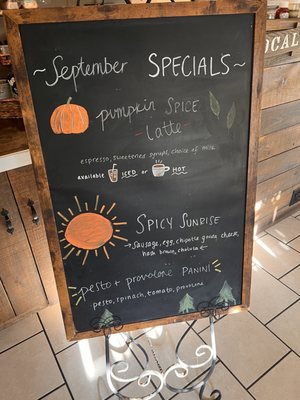 ~ September SPECIALS ~
pumpkin SPICE
- latte -
espresso, sweetened syrups, choice of milk
available ICED or HOT
SPICY SUNRISE
→ Sausage, egg, chipotle gouda cheese,
hash brown, cholula ←
pesto + provolone PANINI
pesto, spinach, tomato, provolone
LOCAL